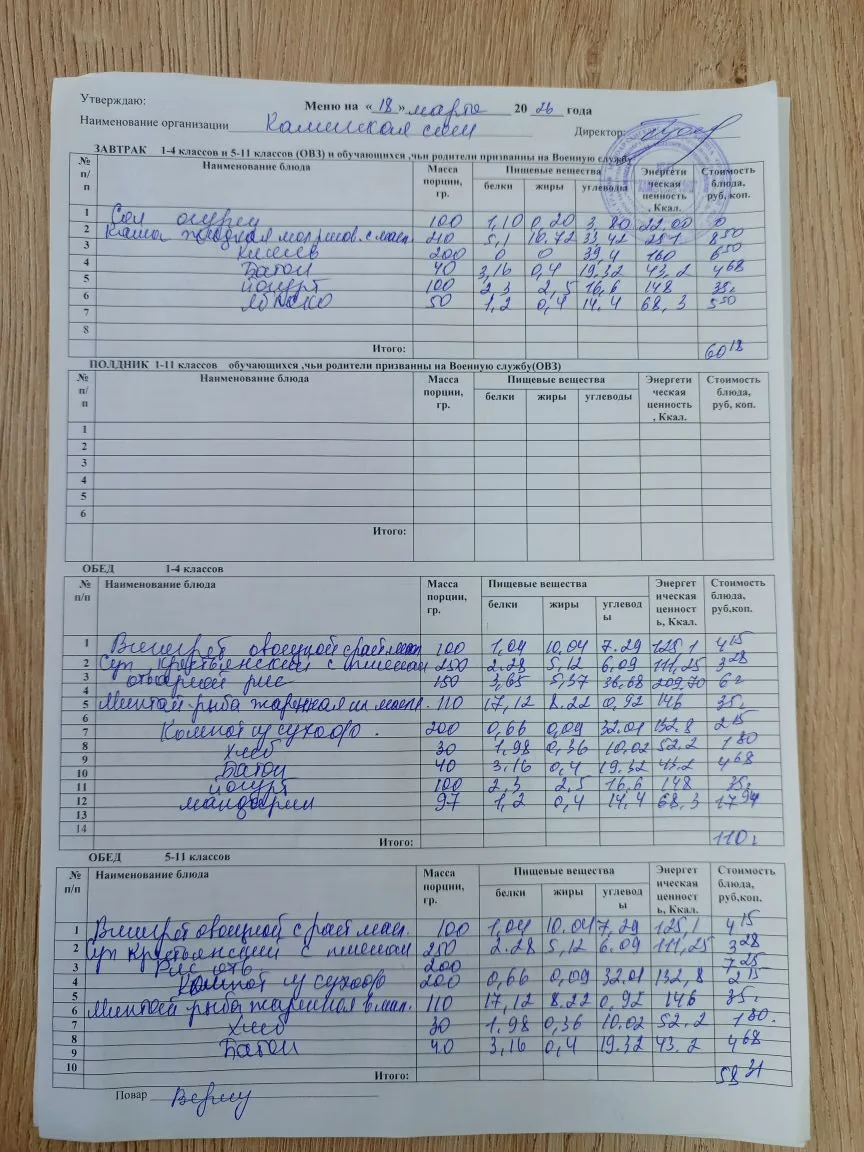 Утверждаю:
Меню на «18» марта 2026 года
Наименование организации Каминская сош Директор:
ЗАВТРАК 1-4 классов и 5-11 классов (ОВЗ) и обучающихся ,чьи родители призванны на Военную службу
№ п/п Наименование блюда Масса порции, гр. Пищевые вещества Энергети ческая ценность , Ккал. Стоимость блюда, руб, коп.
белки жиры углеводы
1 Сол огурец 100 1,10 0,20 3,80 22,00 0
2 Каша жидкая молочная с масл. 210 5,1 10.72 33,42 251 8 50
3 Кисель 200 0 0 39,4 160 6 50
4 Батон 40 3,16 0,4 19,32 43,2 4 68
5 йогурт 100 2 3 2,5 16,6 148 35
6 Яблоко 50 1,2 0,4 14,4 68,3 5 50
7
8
Итого: 60 18
ПОЛДНИК 1-11 классов обучающихся ,чьи родители призванны на Военную службу(ОВЗ)
№ п/п Наименование блюда Масса порции, гр. Пищевые вещества Энергети ческая ценность , Ккал. Стоимость блюда, руб, коп.
белки жиры углеводы
1
2
3
4
5
6
Итого:
ОБЕД 1-4 классов
№ п/п Наименование блюда Масса порции, гр. Пищевые вещества Энергет ическая ценност ь, Ккал. Стоимость блюда, руб,коп.
белки жиры углевод ы
1 Винегрет овощной с раст масл 100 1,04 10,04 7.29 125,1 4 15
2 Суп Крестьянский с пшеном 250 2.28 5,12 6,09 111,25 3 28
3 отварной рис 150 3,65 5,37 36,68 209,70 6
4
5 Минтай-рыба жаренная на масле. 110 17,12 8.22 0,92 146 35
6
7 Компот из сухофр. 200 0,66 0,09 32.01 132.8 2 15
8 Хлеб 30 1,98 0,36 10,02 52.2 1 80
9
10 Батон 40 3,16 0,4 19.32 43.2 4 68
11 йогурт 100 2,3 2,5 16,6 148 35
12 мандарин 97 1,2 0,4 14,4 68,3 17 94
13
14
Итого: 110
ОБЕД 5-11 классов
№ п/п Наименование блюда Масса порции, гр. Пищевые вещества Энергет ическая ценност ь, Ккал. Стоимость блюда, руб,коп.
белки жиры углевод ы
1 Винегрет овощной с раст масл. 100 1,04 10.04 7,29 125,1 4 15
2 Суп Крестьянский с пшеном 250 2.28 5,12 6.09 111,25 3 28
3 Рис отв 200 7 25
4 Компот из сухофр 200 0,66 0,09 32.01 132,8 2 15
5
6 Минтай-рыба жаренная в мал. 110 17,12 8.22 0,92 146 35
7 Хлеб 30 1.98 0,36 10.02 52.2 1 80.
8
9 Батон 40 3,16 0,4 19.32 43.2 4 68
10
Итого: 58 31
Повар